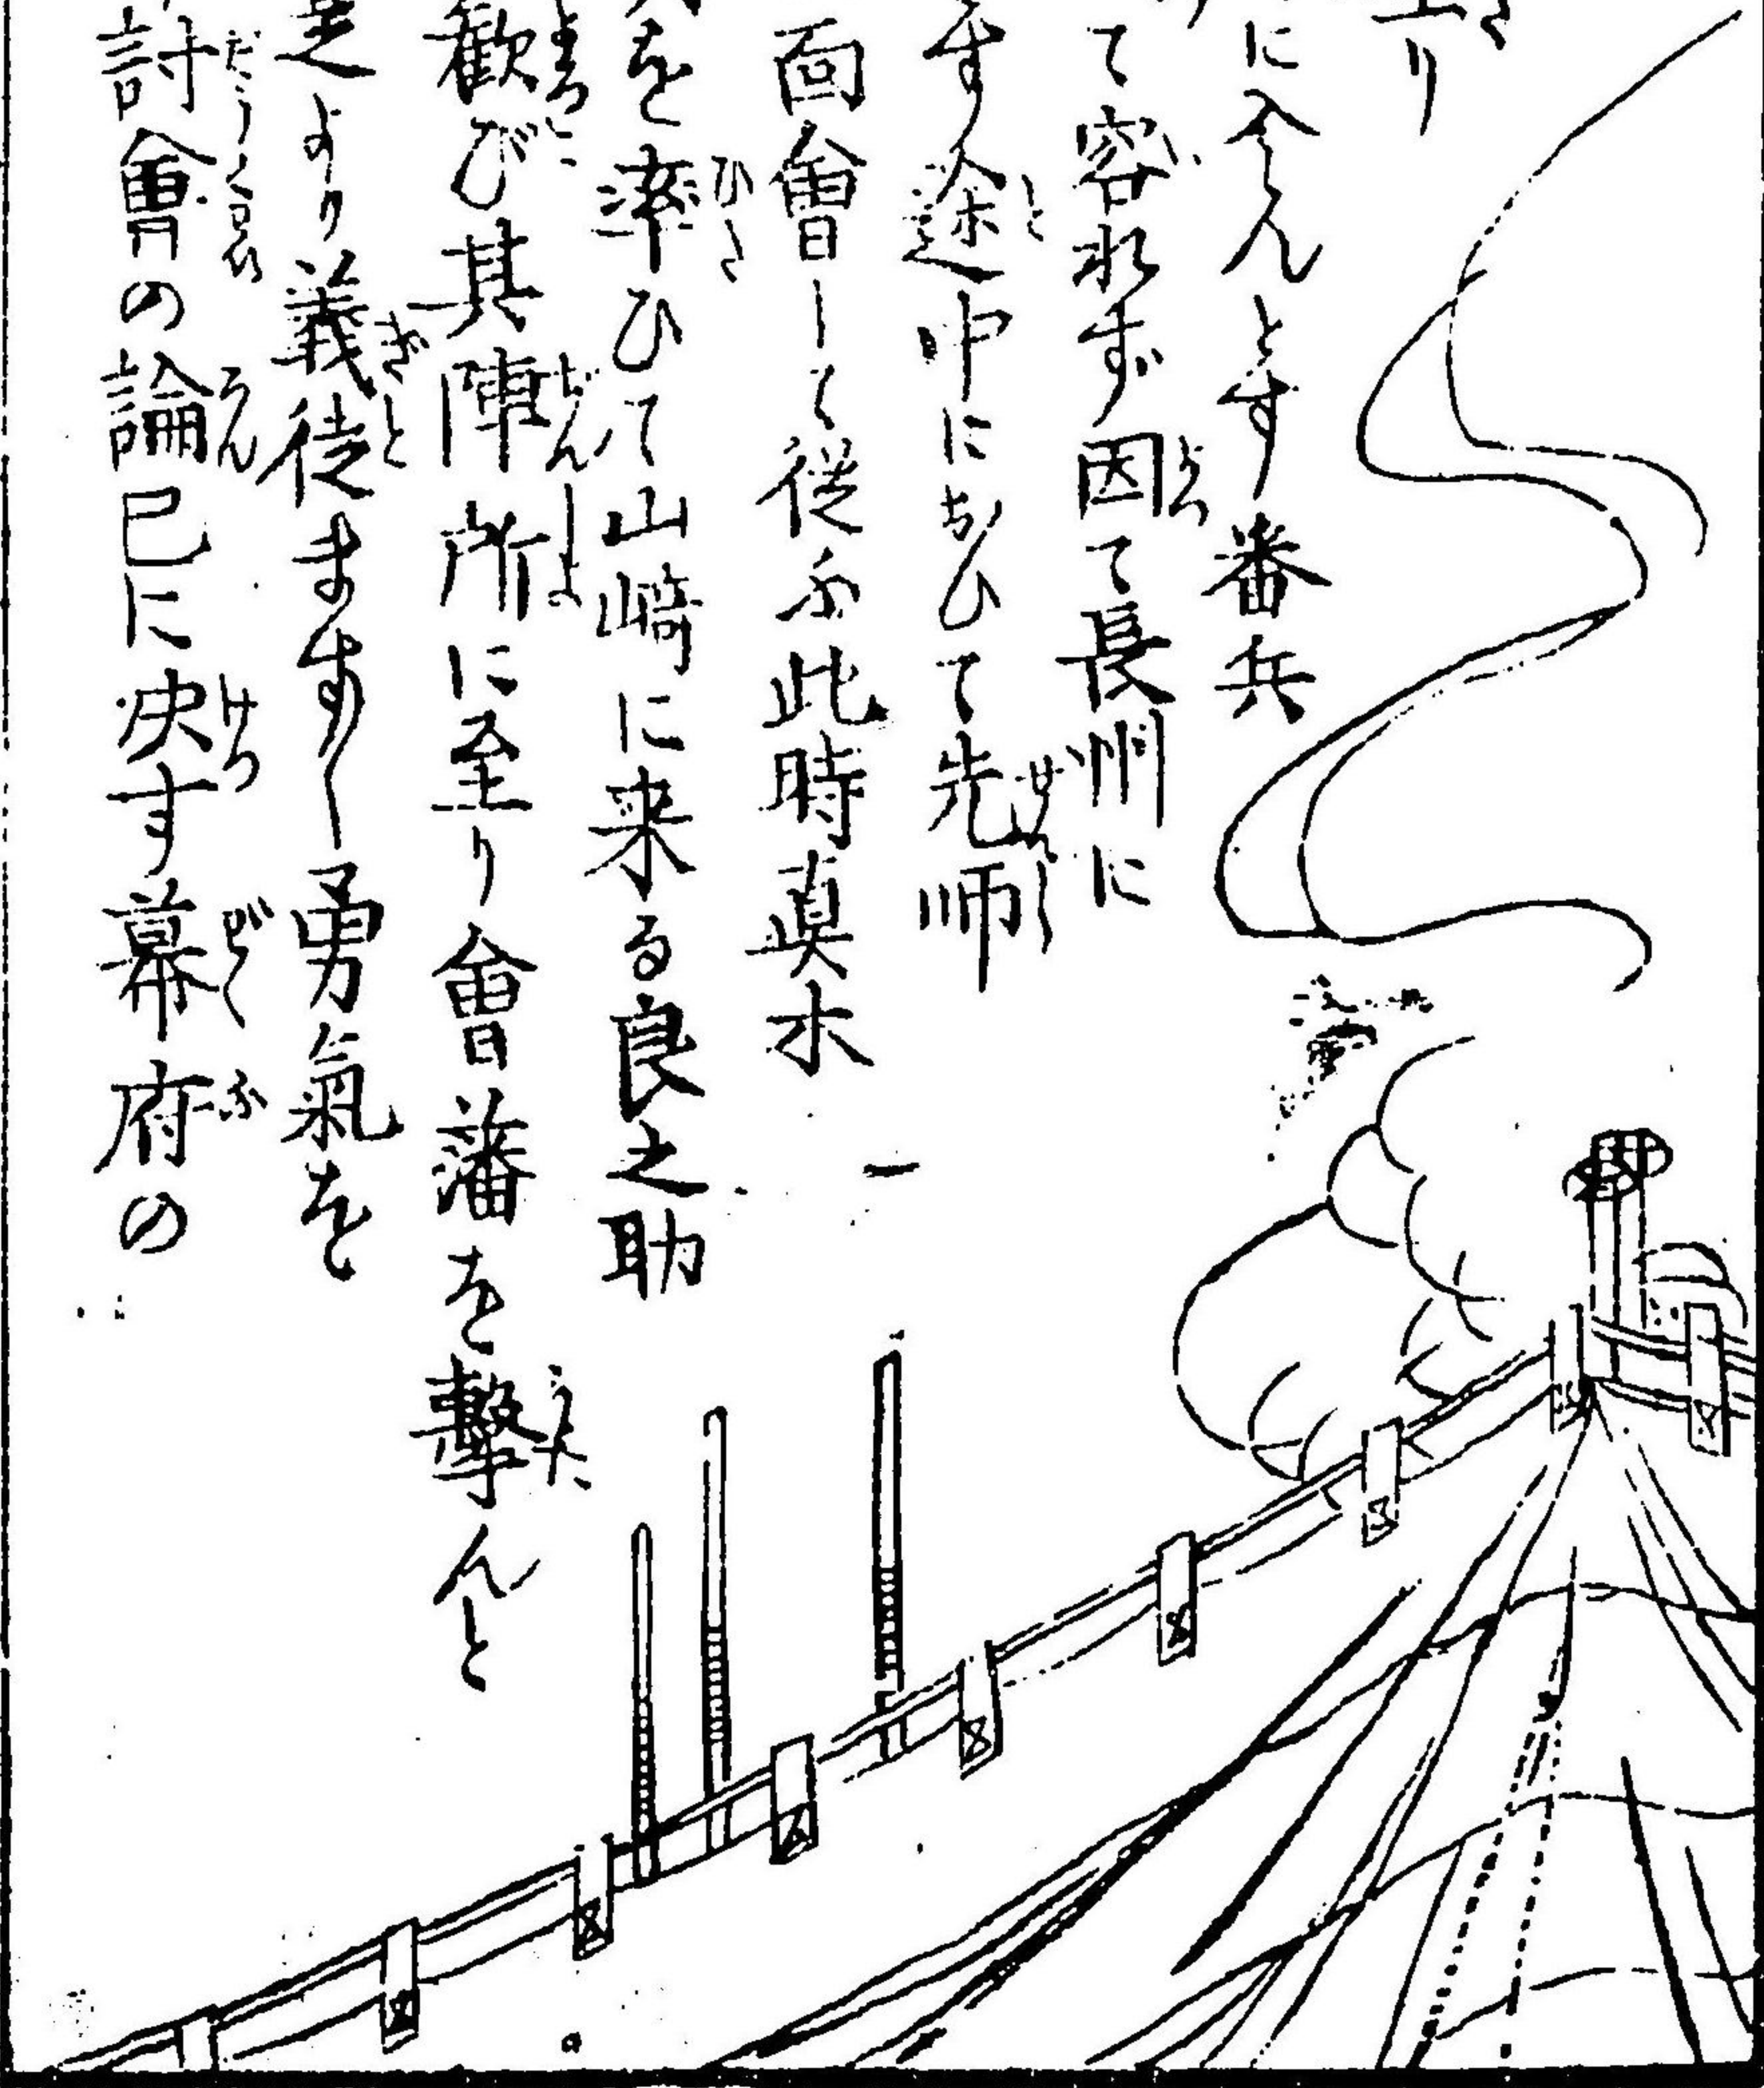 り
に入らんとす番兵
て容れず因て長州に
す途中において先師
面會して従ふ此時真木
を率ひて山崎に来る良之助
歓び其陣所に至り會藩を撃んと
是より義徒ますます勇氣を
討會の論已に決す幕府の